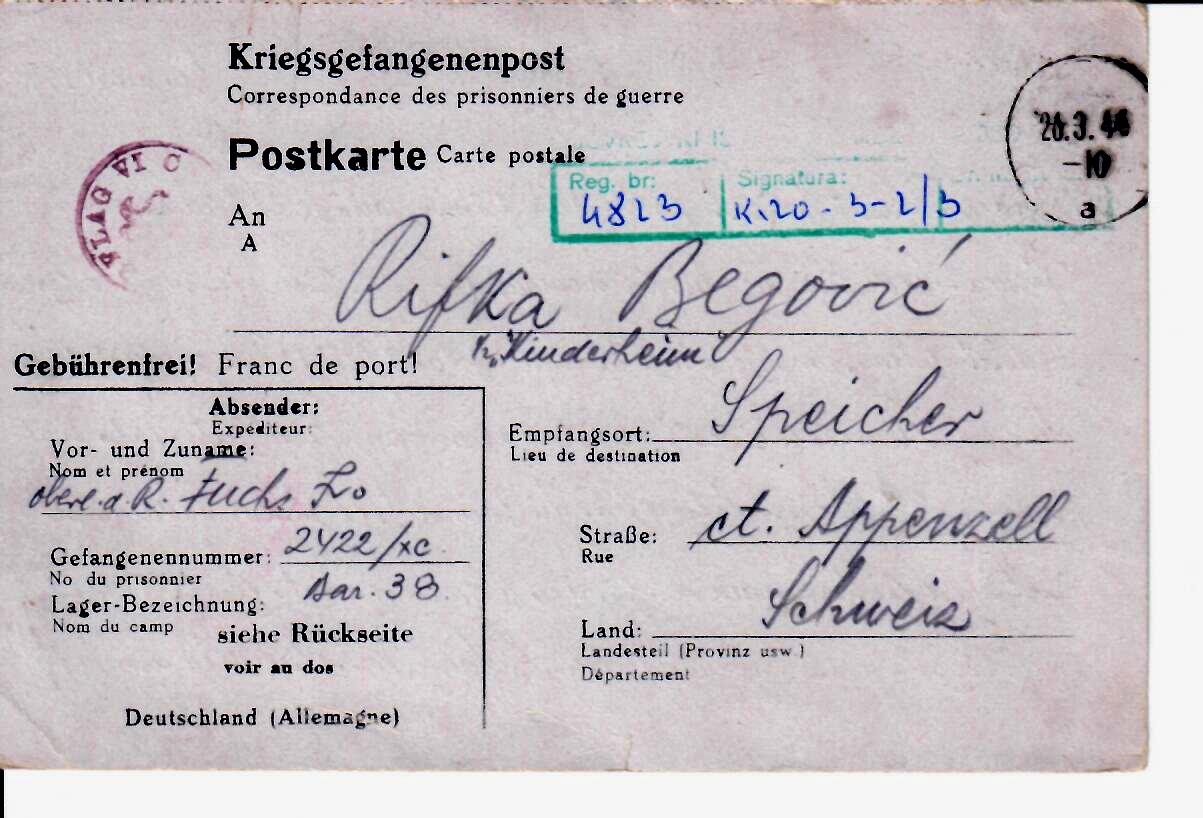 Kriegsgefangenenpost
Correspondance des prisonniers de guerre
Postkarte Carte postale
28.3.44
-10
a
FLAG VI C
Reg. br:
Signatura:
4823
K.20-3-2/3
An
A
Rifka Begović
Kinderheim
Gebührenfrei! Franc de port!
Absender:
Expediteur:
Vor- und Zuname:
Nom et prénom
oberl. d. R. Fuchs
Gefangenennummer: 2422/XC
No du prisonnier
Bar. 38
Lager-Bezeichnung:
Nom du camp
siehe Rückseite
voir au dos
Deutschland (Allemagne)
Empfangsort: Speicher
Lieu de destination
Straße: ct. Appenzell
Rue
Schweiz
Land:
Landesteil (Provinz usw.)
Département